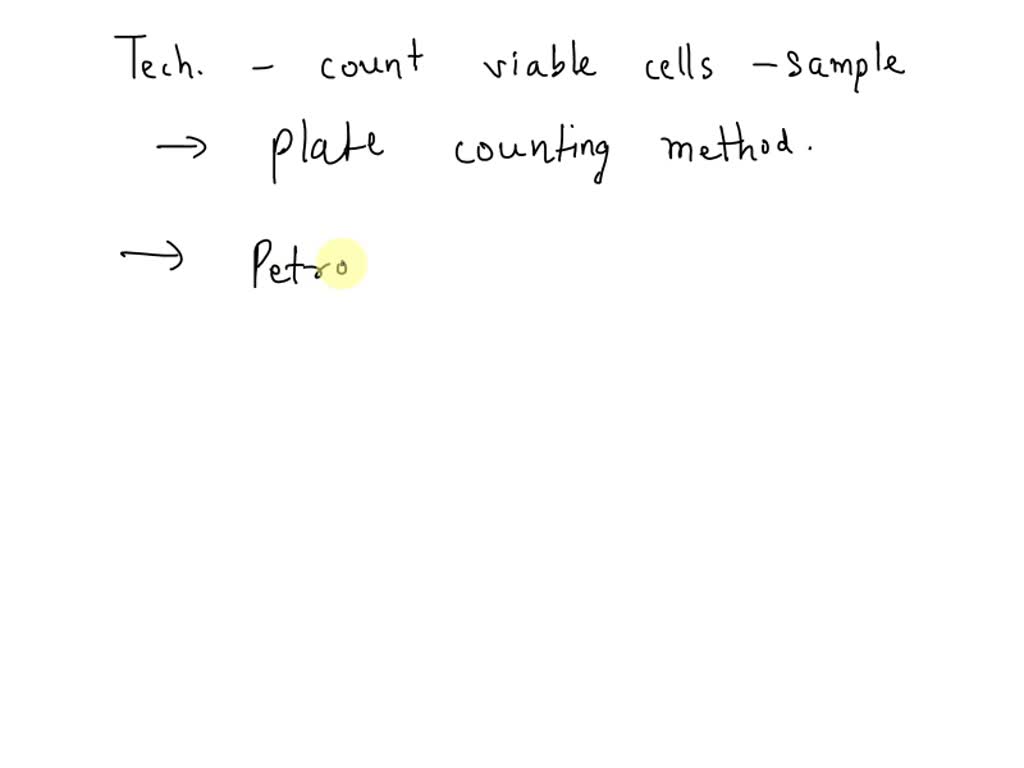 Tech. - count viable cells - sample
→ plate counting method.
→ Petro